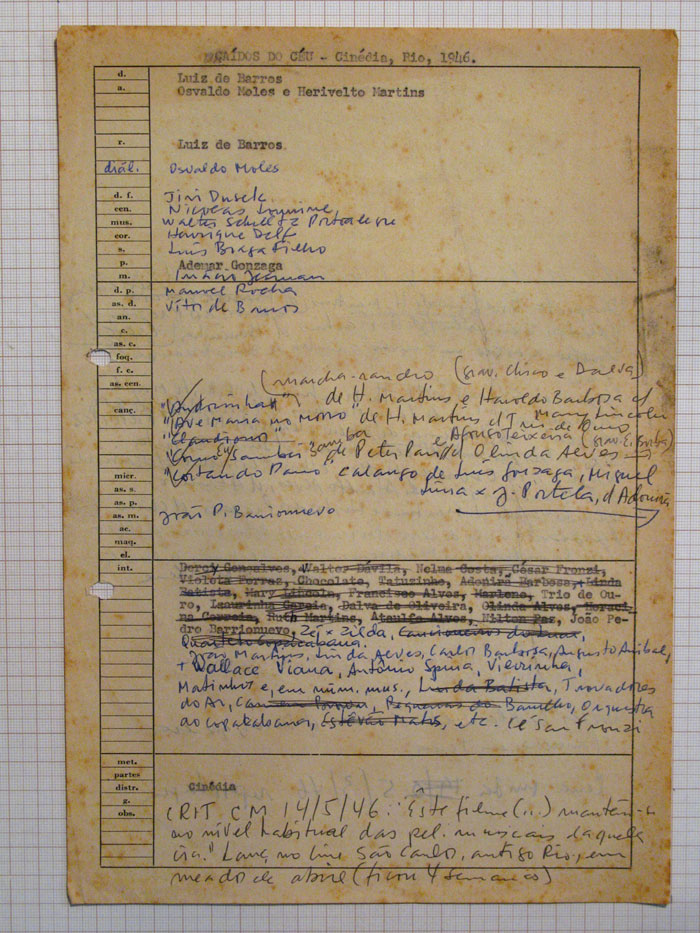 CAÍDOS DO CÉU - Cinédia, Rio, 1946.
d. Luiz de Barros
a. Osvaldo Moles e Herivelto Martins
r. Luiz de Barros
diál. Osvaldo Moles
d. f. Jiri Dusek
cen. Nicolas
mus. Walter Schultz Portoalegre
cor. Henrique Delf
s. Luís Braga Filho
p. Ademar Gonzaga
m.
d. p. Manuel Rocha
as. d. Vítor de Barros
an.
c.
as. c.
foq.
f. c.
as. cen.
(marcha-rancho (grav. Chico e Dalva)
"Andorinha" de H. Martins e Haroldo Barbosa c/ Mary Lincoln
canç. "Ave Maria no Morro" de H. Martins c/ Trio de Ouro
e Afonso Teixeira
samba de Peter Pan c/ Olinda Alves
micr. "Cortando Pano" calango de Luís Gonzaga, Miguel
as. s. Lima x J. Portela,
as. p.
as. m. João P. Barrionuevo
ac.
maq.
el.
int. Dercy Gonçalves, Walter Dávila, Nelma Costa, César Fronzi,
Violeta Ferraz, Chocolate, Tatuzinho, Adonirã Barbosa, Linda
Batista, Mary Lincoln, Francisco Alves, Marlene, Trio de Ou-
ro, Isaurinha Garcia, Dalva de Oliveira, Olinda Alves, Horaci-
na Correia, Ruth Martins, Ataulfo Alves, Nilton Paz, João Pe-
dro Barrionuevo, Zé x Zilda,
Quarteto Copacabana.
João Martins, Linda Alves, Carlos Barbosa, Augusto Aníbal,
+ Wallace Viana, Antônio Spina, Vieirinha,
Matinhos e, em núm. mus., Linda Batista, Trovadores
do Ar, Pequenas do Barulho, Orquestra
do Copacabana, Estêvão Matos, etc. César Fronzi
met.
partes
distr. Cinédia
g.
obs. CRIT CM 14/5/46: "Este filme (...) mantém-se
no nível habitual das pel. musicais daquela
cia." Lanç. no Cine São Carlos, antigo Rio, em
meados de abril (ficou 4 semanas)